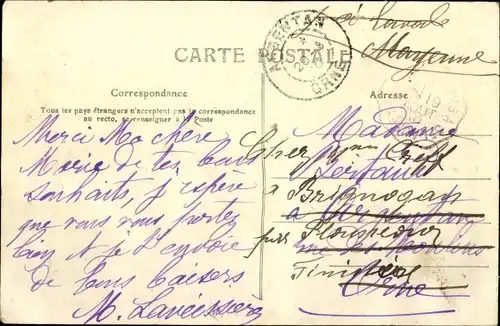 CARTE POSTALE
ARGENTAN
ORNE
à Laval
Mayenne
Correspondance
Tous les pays étrangers n'acceptent pas la correspondance
au recto, se renseigner à la Poste
Merci Ma chère
Marie de tes bons
souhaits, j'espère
que vous vous portez
bien et je t'envoie
de bons baisers
Adresse
Madame
Cher
à Brignogan
à Argentan
par Plouneour
rue des
Finistère
Orne